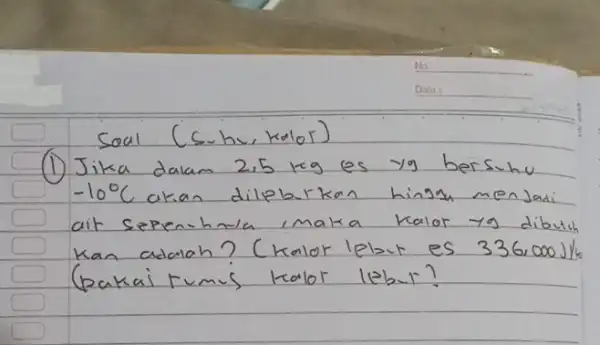 No.
Date :
Soal (Suhu, Kalor)
① Jika dalam 2,5 kg es yg bersuhu
-10°C akan dileburkan hingga menjadi
air sepenuhnya, maka kalor yg dibutuh
kan adalah? (Kalor lebur es 336,000 J/k
(pakai rumus kalor lebur?